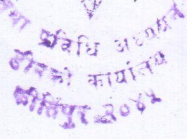 प्रविधि अध्ययन
डीनको कार्यालय
कीर्तिपुर, २०४५